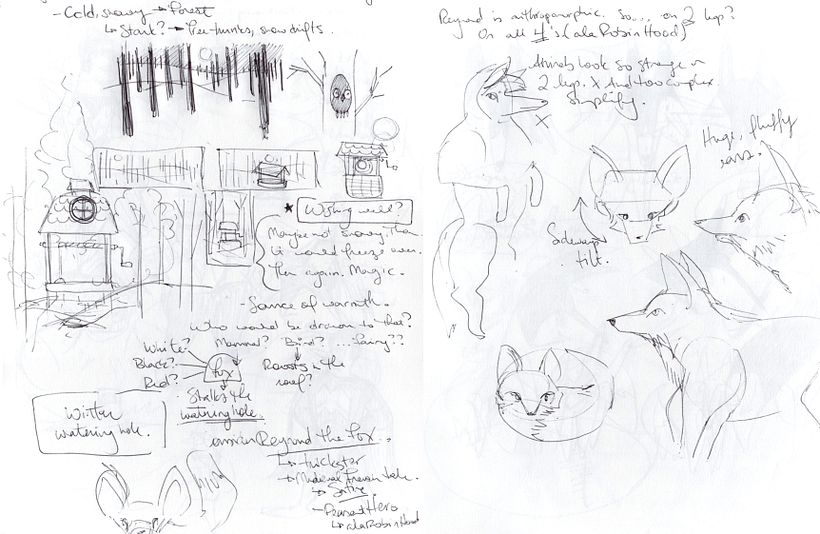 - Cold, snowy → Forest
↳ Stark? → Tree-trunks, snow drifts.
★ Wishing well?
Maybe not snowy, then
it would freeze over.
Then again. Magic.
- Source of warmth.
Who would be drawn to that?
Mammal? Bird? ... Fairy??
White?
Black?
Red?
Fox
Roosts in the
roof?
Stalks the
watering hole.
Winter
watering hole.
Reynard the Fox.
↳ trickster
→ Medieval French tale.
↳ Satire.
- Peasant Hero
↳ ala Robin Hood
Reynard is anthropomorphic. So... on 2 legs?
On all 4's (ala Robin Hood)
Animals look so strange on
2 legs. X And too complex.
Simplify.
X
Huge, fluffy
ears.
Sideways
tilt.